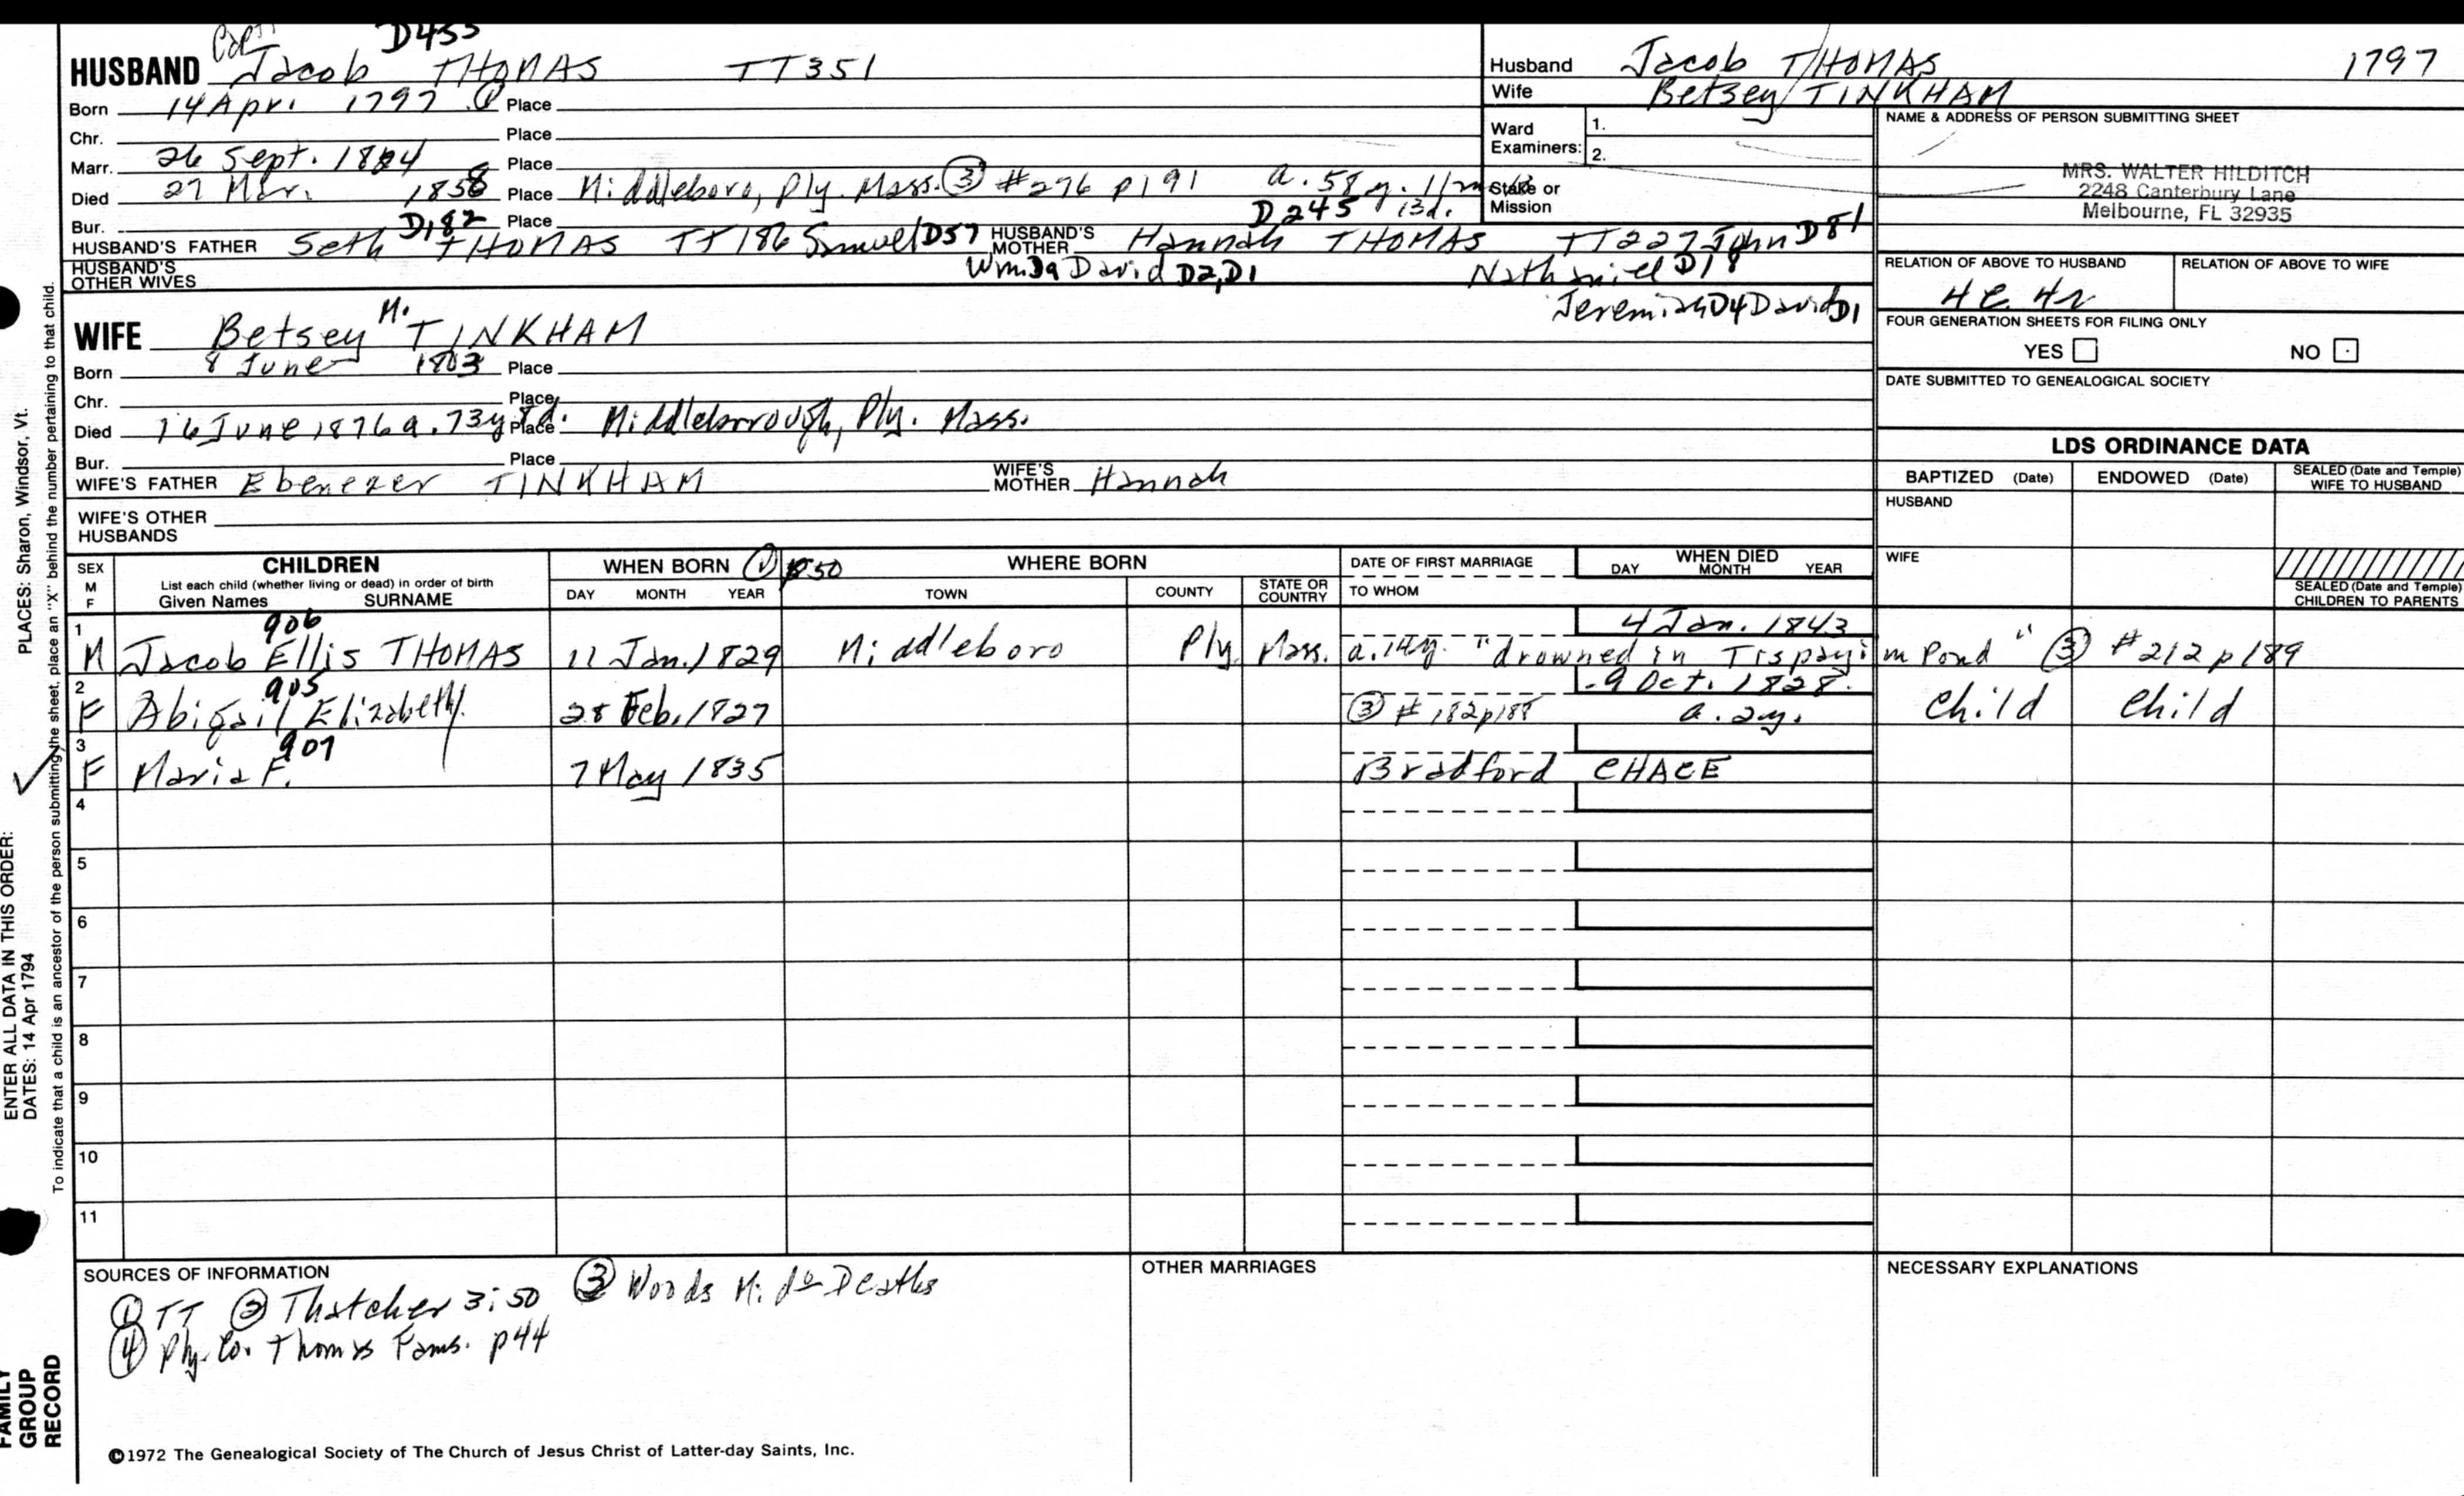 Capt D455
HUSBAND Jacob THOMAS TT351
Born 14 Apr. 1797 ① Place
Chr. Place
Marr. 26 Sept. 1824 Place
Died 27 Mar. 1856 Place Middleboro, Ply. Mass. ③ #276 p191 a. 58y. 11m 13d.
Bur. Place
D182 D245
HUSBAND'S FATHER Seth THOMAS TT186 Samuel D57 HUSBAND'S MOTHER Hannah THOMAS TT227 John D81
HUSBAND'S OTHER WIVES Wm D9 David D2, D1 Nathaniel D18
Jeremiah D4 David D1
WIFE Betsey M. TINKHAM
Born 8 June 1803 Place
Chr. Place
Died 16 June 1876 a. 73y 8d. Place Middleborrough, Ply. Mass.
Bur. Place
WIFE'S FATHER Ebenezer TINKHAM WIFE'S MOTHER Hannah
WIFE'S OTHER HUSBANDS
Husband Jacob THOMAS 1797
Wife Betsey TINKHAM
Ward Examiners: 1.
2.
Stake or Mission
NAME & ADDRESS OF PERSON SUBMITTING SHEET
MRS. WALTER HILDITCH
2248 Canterbury Lane
Melbourne, FL 32935
RELATION OF ABOVE TO HUSBAND RELATION OF ABOVE TO WIFE
FOUR GENERATION SHEETS FOR FILING ONLY
YES NO
DATE SUBMITTED TO GENEALOGICAL SOCIETY
LDS ORDINANCE DATA
BAPTIZED (Date) ENDOWED (Date) SEALED (Date and Temple) WIFE TO HUSBAND
HUSBAND
WIFE
SEALED (Date and Temple) CHILDREN TO PARENTS
SEX M F CHILDREN WHEN BORN ① WHERE BORN DATE OF FIRST MARRIAGE WHEN DIED
List each child (whether living or dead) in order of birth
Given Names SURNAME DAY MONTH YEAR TOWN COUNTY STATE OR COUNTRY TO WHOM DAY MONTH YEAR
906 4 Jan. 1843
1 M Jacob Ellis THOMAS 11 Jan. 1829 Middleboro Ply. Mass. a. 14y. "drowned in Tispaquim Pond" ③ #212 p189
905 9 Oct. 1828.
2 F Abigail Elizabeth 28 Feb. 1827 ③ #182 p188 a. 2y. Child Child
907
3 F Maria F. 7 May 1835 Bradford CHACE
4
5
6
7
8
9
10
11
SOURCES OF INFORMATION
① TT ② Thatcher 3:50 ③ Woods Mido Deaths
④ Ply. Co. Thomas Fams. p44
OTHER MARRIAGES
NECESSARY EXPLANATIONS
©1972 The Genealogical Society of The Church of Jesus Christ of Latter-day Saints, Inc.
FAMILY GROUP RECORD
ENTER ALL DATA IN THIS ORDER:
DATES: 14 Apr 1794
PLACES: Sharon, Windsor, Vt.
To indicate that a child is an ancestor of the person submitting the sheet, place an "X" behind the number pertaining to that child.